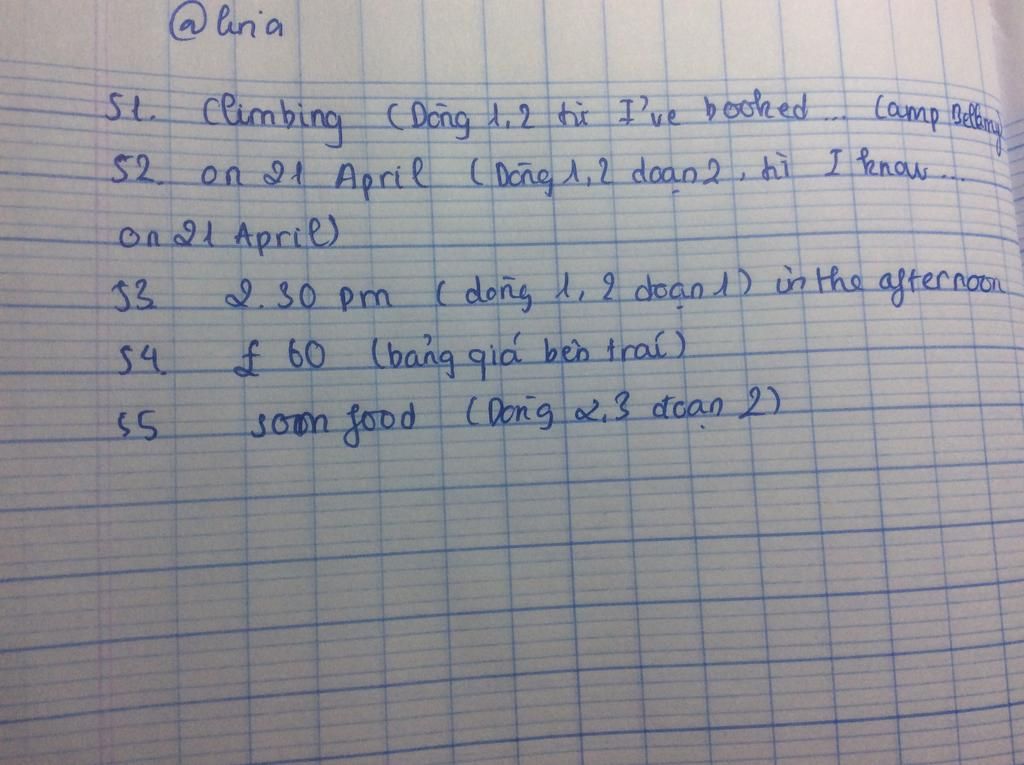 @ aria
51. Climbing (Dòng 1,2 từ I've booked ... Camp Bellamy
52 on 21 April (Dòng 1,2 đoạn 2, từ I know ...
on 21 April)
53 2.30 pm (dòng 1, 2 đoạn 1) in the afternoon
54 £ 60 (bảng giá bên trái)
55 soon food (Dòng 2,3 đoạn 2)